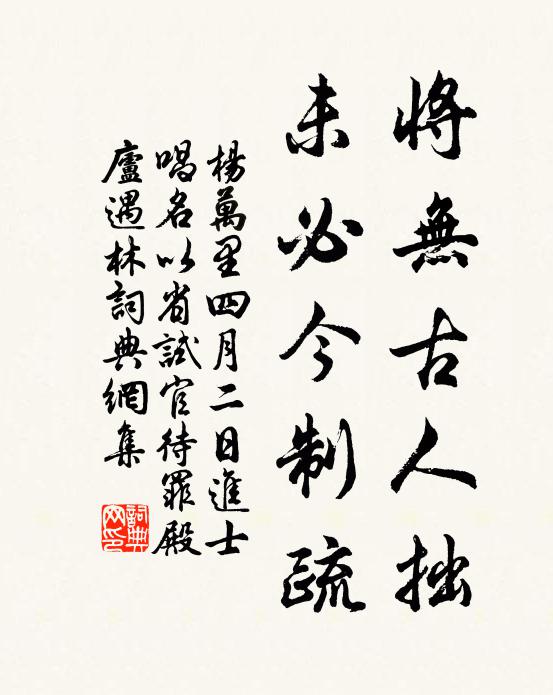 將無古人拙
未必今制疏
楊萬里四月二日進士
唱名以省試官待罪殿
廬遇林詞典網集
詞典网印